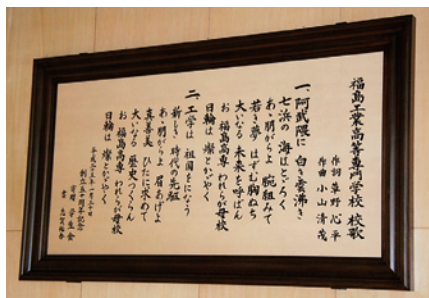 福島工業高等専門学校 校歌
作詞 草野心平
作曲 小山清茂
一、阿武隈に 白き雲沸き
七浜の 海はとどろく
あゝ朋がらよ 腕組みて
若き夢 はずむ胸ぬち
大いなる 未来を呼ばん
お 福島高専 われらが母校
日輪は 燦とかがやく
二、工学は 祖国をになう
新しき 時代の先駆
あゝ朋がらよ 眉あげよ
真善美 ひたに求めて
大いなる 歴史つくらん
お 福島高専 われらが母校
日輪は 燦とかがやく
平成二十三年一月三十日
創立五十周年記念
寄贈 学生会
書